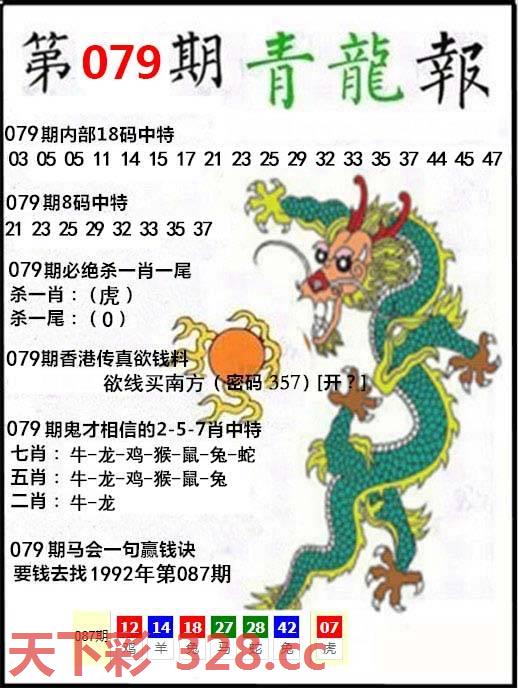 第079期青龍報
079期内部18码中特
03 05 05 11 14 15 17 21 23 25 29 32 33 35 37 44 45 47
079期8码中特
21 23 25 29 32 33 35 37
079期必绝杀一肖一尾
杀一肖：（虎）
杀一尾：（0）
079期香港传真欲钱料
欲线买南方（密码357）[开？]
079期鬼才相信的2-5-7肖中特
七肖：牛-龙-鸡-猴-鼠-兔-蛇
五肖：牛-龙-鸡-猴-鼠-兔
二肖：牛-龙
079期马会一句赢钱诀
要钱去找1992年第087期
087期
12 14 18 27 28 42 07
鸡 羊 兔 马 蛇 兔 虎
天下彩 328.cc